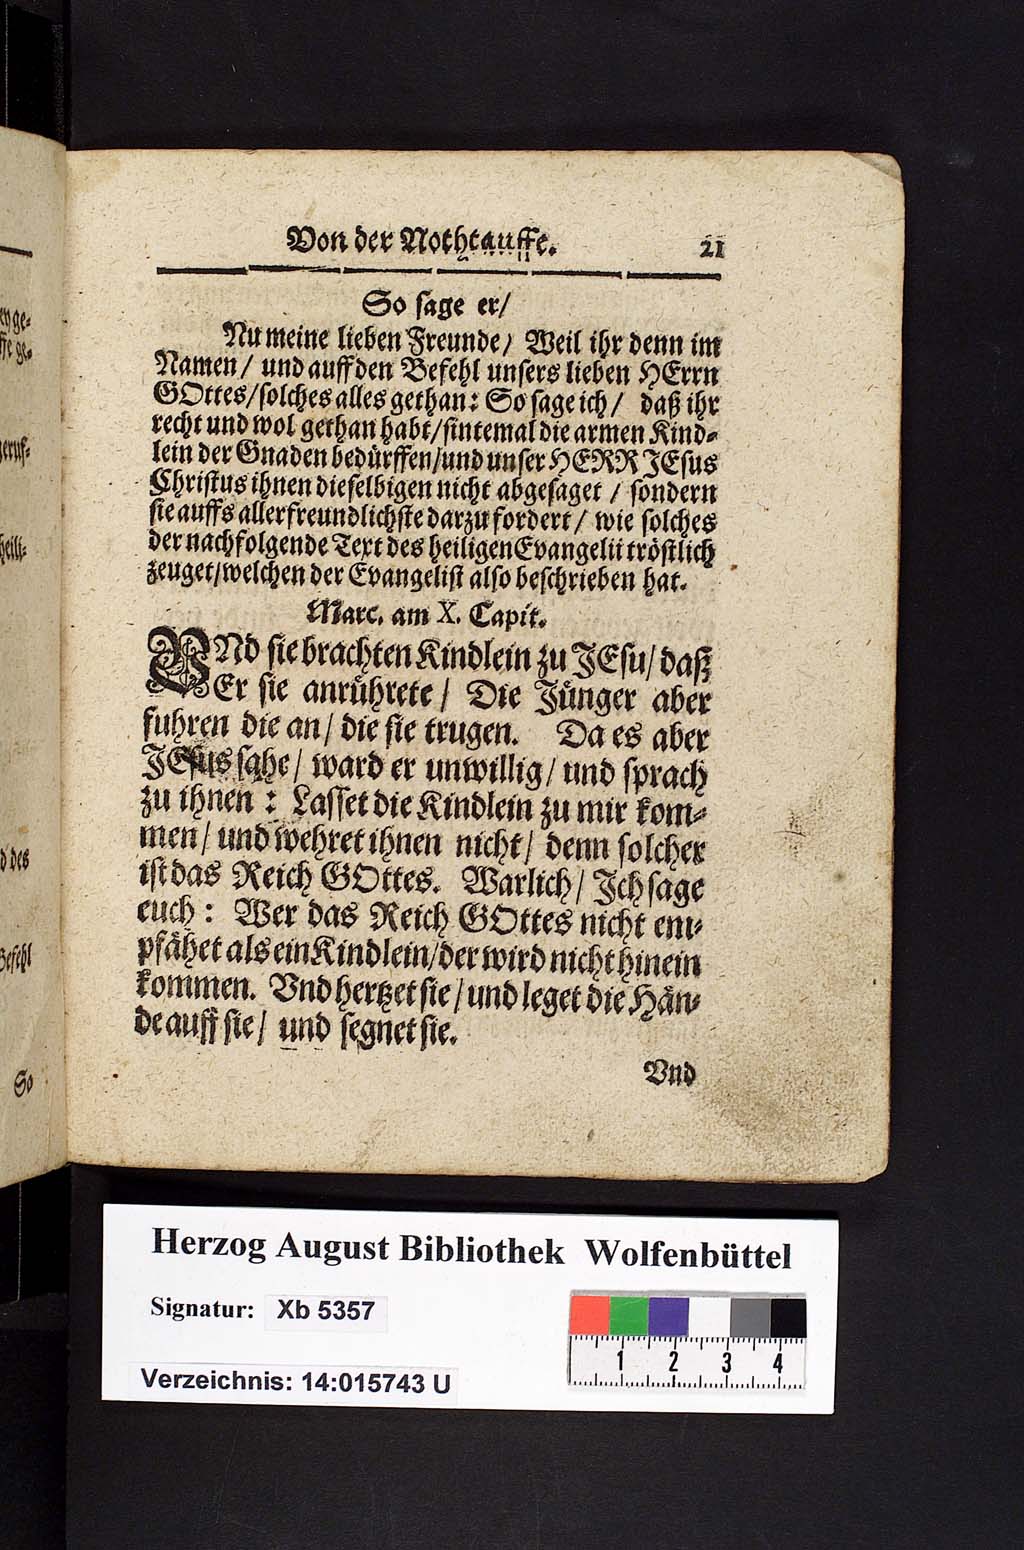 Von der Nothtauffe. 21
So sage er/
Nu meine lieben Freunde/ Weil ihr denn im
Namen/ und auff den Befehl unsers lieben HErrn
GOttes/solches alles gethan: So sage ich/ daß ihr
recht und wol gethan habt/sintemal die armen Kind-
lein der Gnaden bedürffen/und unser HERR JEsus
Christus ihnen dieselbigen nicht abgesaget/ sondern
sie auffs allerfreundlichste darzu fordert/ wie solches
der nachfolgende Text des heiligen Evangelii tröstlich
zeuget/welchen der Evangelist also beschrieben hat.
Marc. am X. Capit.
VNd sie brachten Kindlein zu JEsu/ daß
Er sie anrührete/ Die Jünger aber
fuhren die an/ die sie trugen. Da es aber
JEsus sahe/ ward er unwillig/ und sprach
zu ihnen: Lasset die Kindlein zu mir kom-
men/ und wehret ihnen nicht/ denn solcher
ist das Reich GOttes. Warlich/ Ich sage
euch: Wer das Reich GOttes nicht em-
pfähet als ein Kindlein/der wird nicht hinein
kommen. Vnd hertzet sie/ und leget die Hän-
de auff sie/ und segnet sie.
Vnd
ge-
ge-
geruf-
heili-
des
Befehl
So
Herzog August Bibliothek Wolfenbüttel
Signatur: Xb 5357
Verzeichnis: 14:015743 U
1 2 3 4